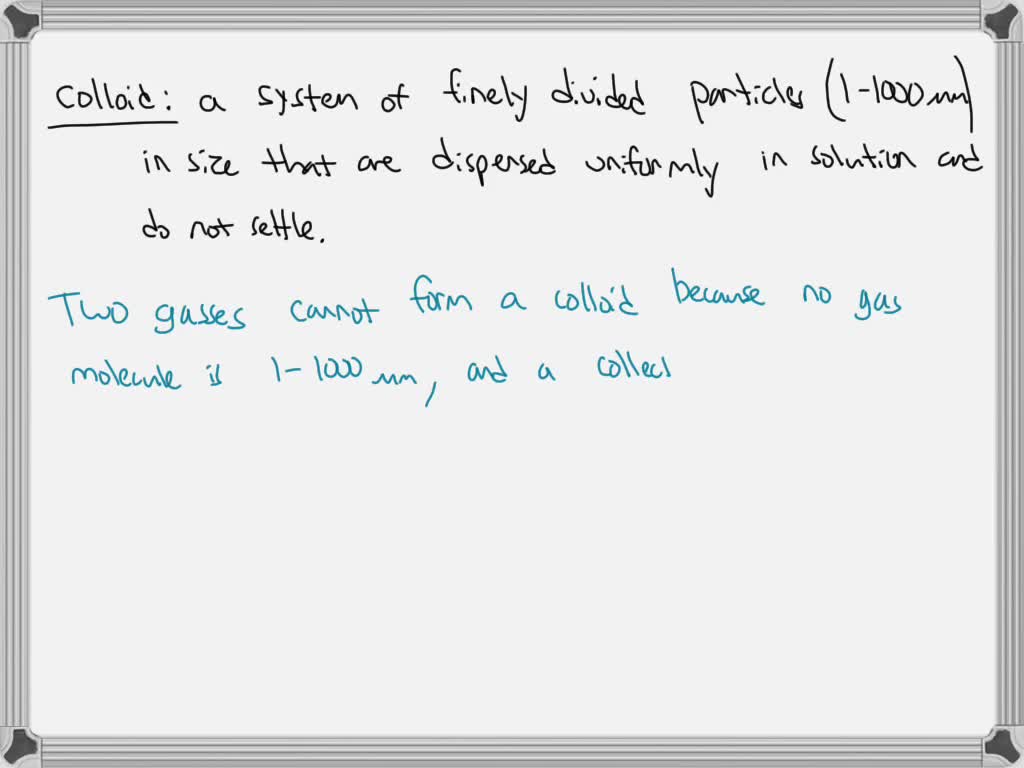 Colloid: a system of finely divided particles (1-1000 nm)
in size that are dispersed uniformly in solution and
do not settle.
Two gasses cannot form a colloid because no gas
molecule is 1-1000 nm, and a collect